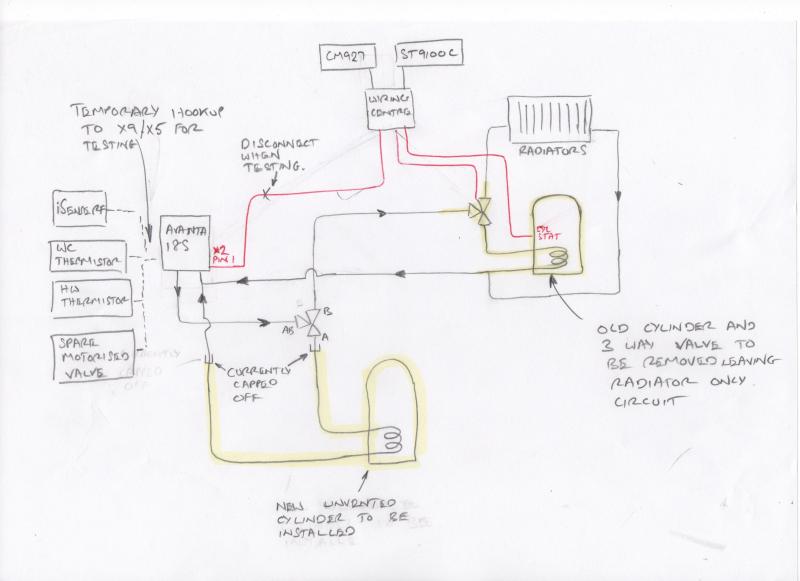 CM927
ST9100C
WIRING
CENTRE
TEMPORARY HOOKUP
TO X9/X5 FOR
TESTING
DISCONNECT
WHEN
TESTING.
RADIATORS
iSENDERF
AVANTA
18S
X2
PIN 1
CYL
STAT
WC
THERMISTOR
HW
THERMISTOR
B
AB
A
SPARE
MOTORISED
VALVE
CURRENTLY
CAPPED
OFF
OLD CYLINDER AND
3 WAY VALVE TO
BE REMOVED LEAVING
RADIATOR ONLY
CIRCUIT
NEW UNVENTED
CYLINDER TO BE
INSTALLED